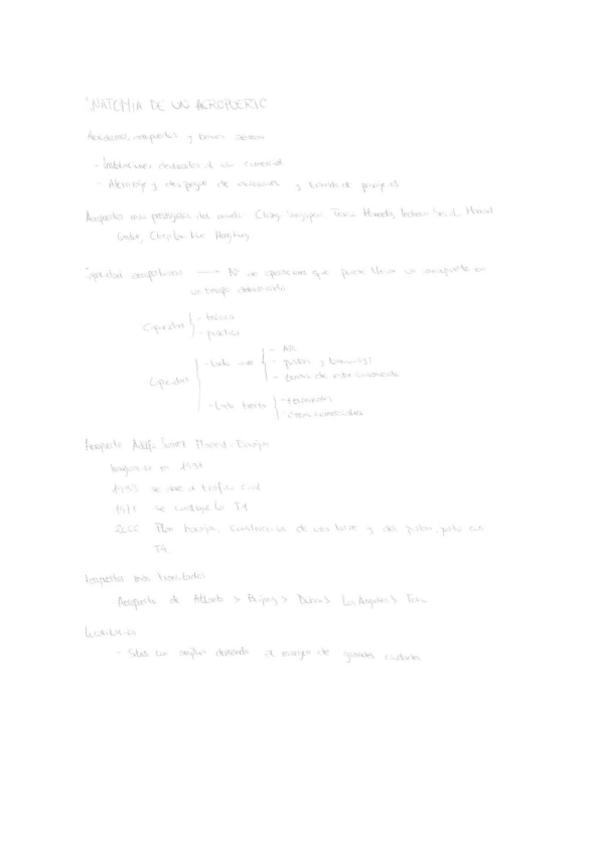 NATOMIA DE UN AEROPUERTO
Aeródromos, aeropuertos y bases aéreas
- Instalaciones destinadas al uso comercial
- Aterrizaje y despegue de aeronaves y tránsito de pasajeros
Aeropuertos más prestigiados del mundo: Changi Singapur, Tokio Haneda, Incheon Seúl, Hamad
Doha, Hong Kong
Capacidad aeroportuaria → Nº de operaciones que puede llevar un aeropuerto en
un tiempo determinado
Capacidad - teórica
- práctica
Capacidad - Lado aire - ATC
- pistas y
- de estacionamiento
- Lado tierra - terminales
- zonas comerciales
Aeropuerto Adolfo Suárez Madrid-Barajas
Inauguración en 1931
1933 se abre a tráfico civil
1971 se construye la T1
2000 Plan Barajas. Construcción de una torre y dos pistas, junto con
T4.
Aeropuertos más transitados
Aeropuerto de Atlanta > Beijing > Dubai > Los Angeles > Tokio
- Sitios con amplia demanda al margen de grandes ciudades